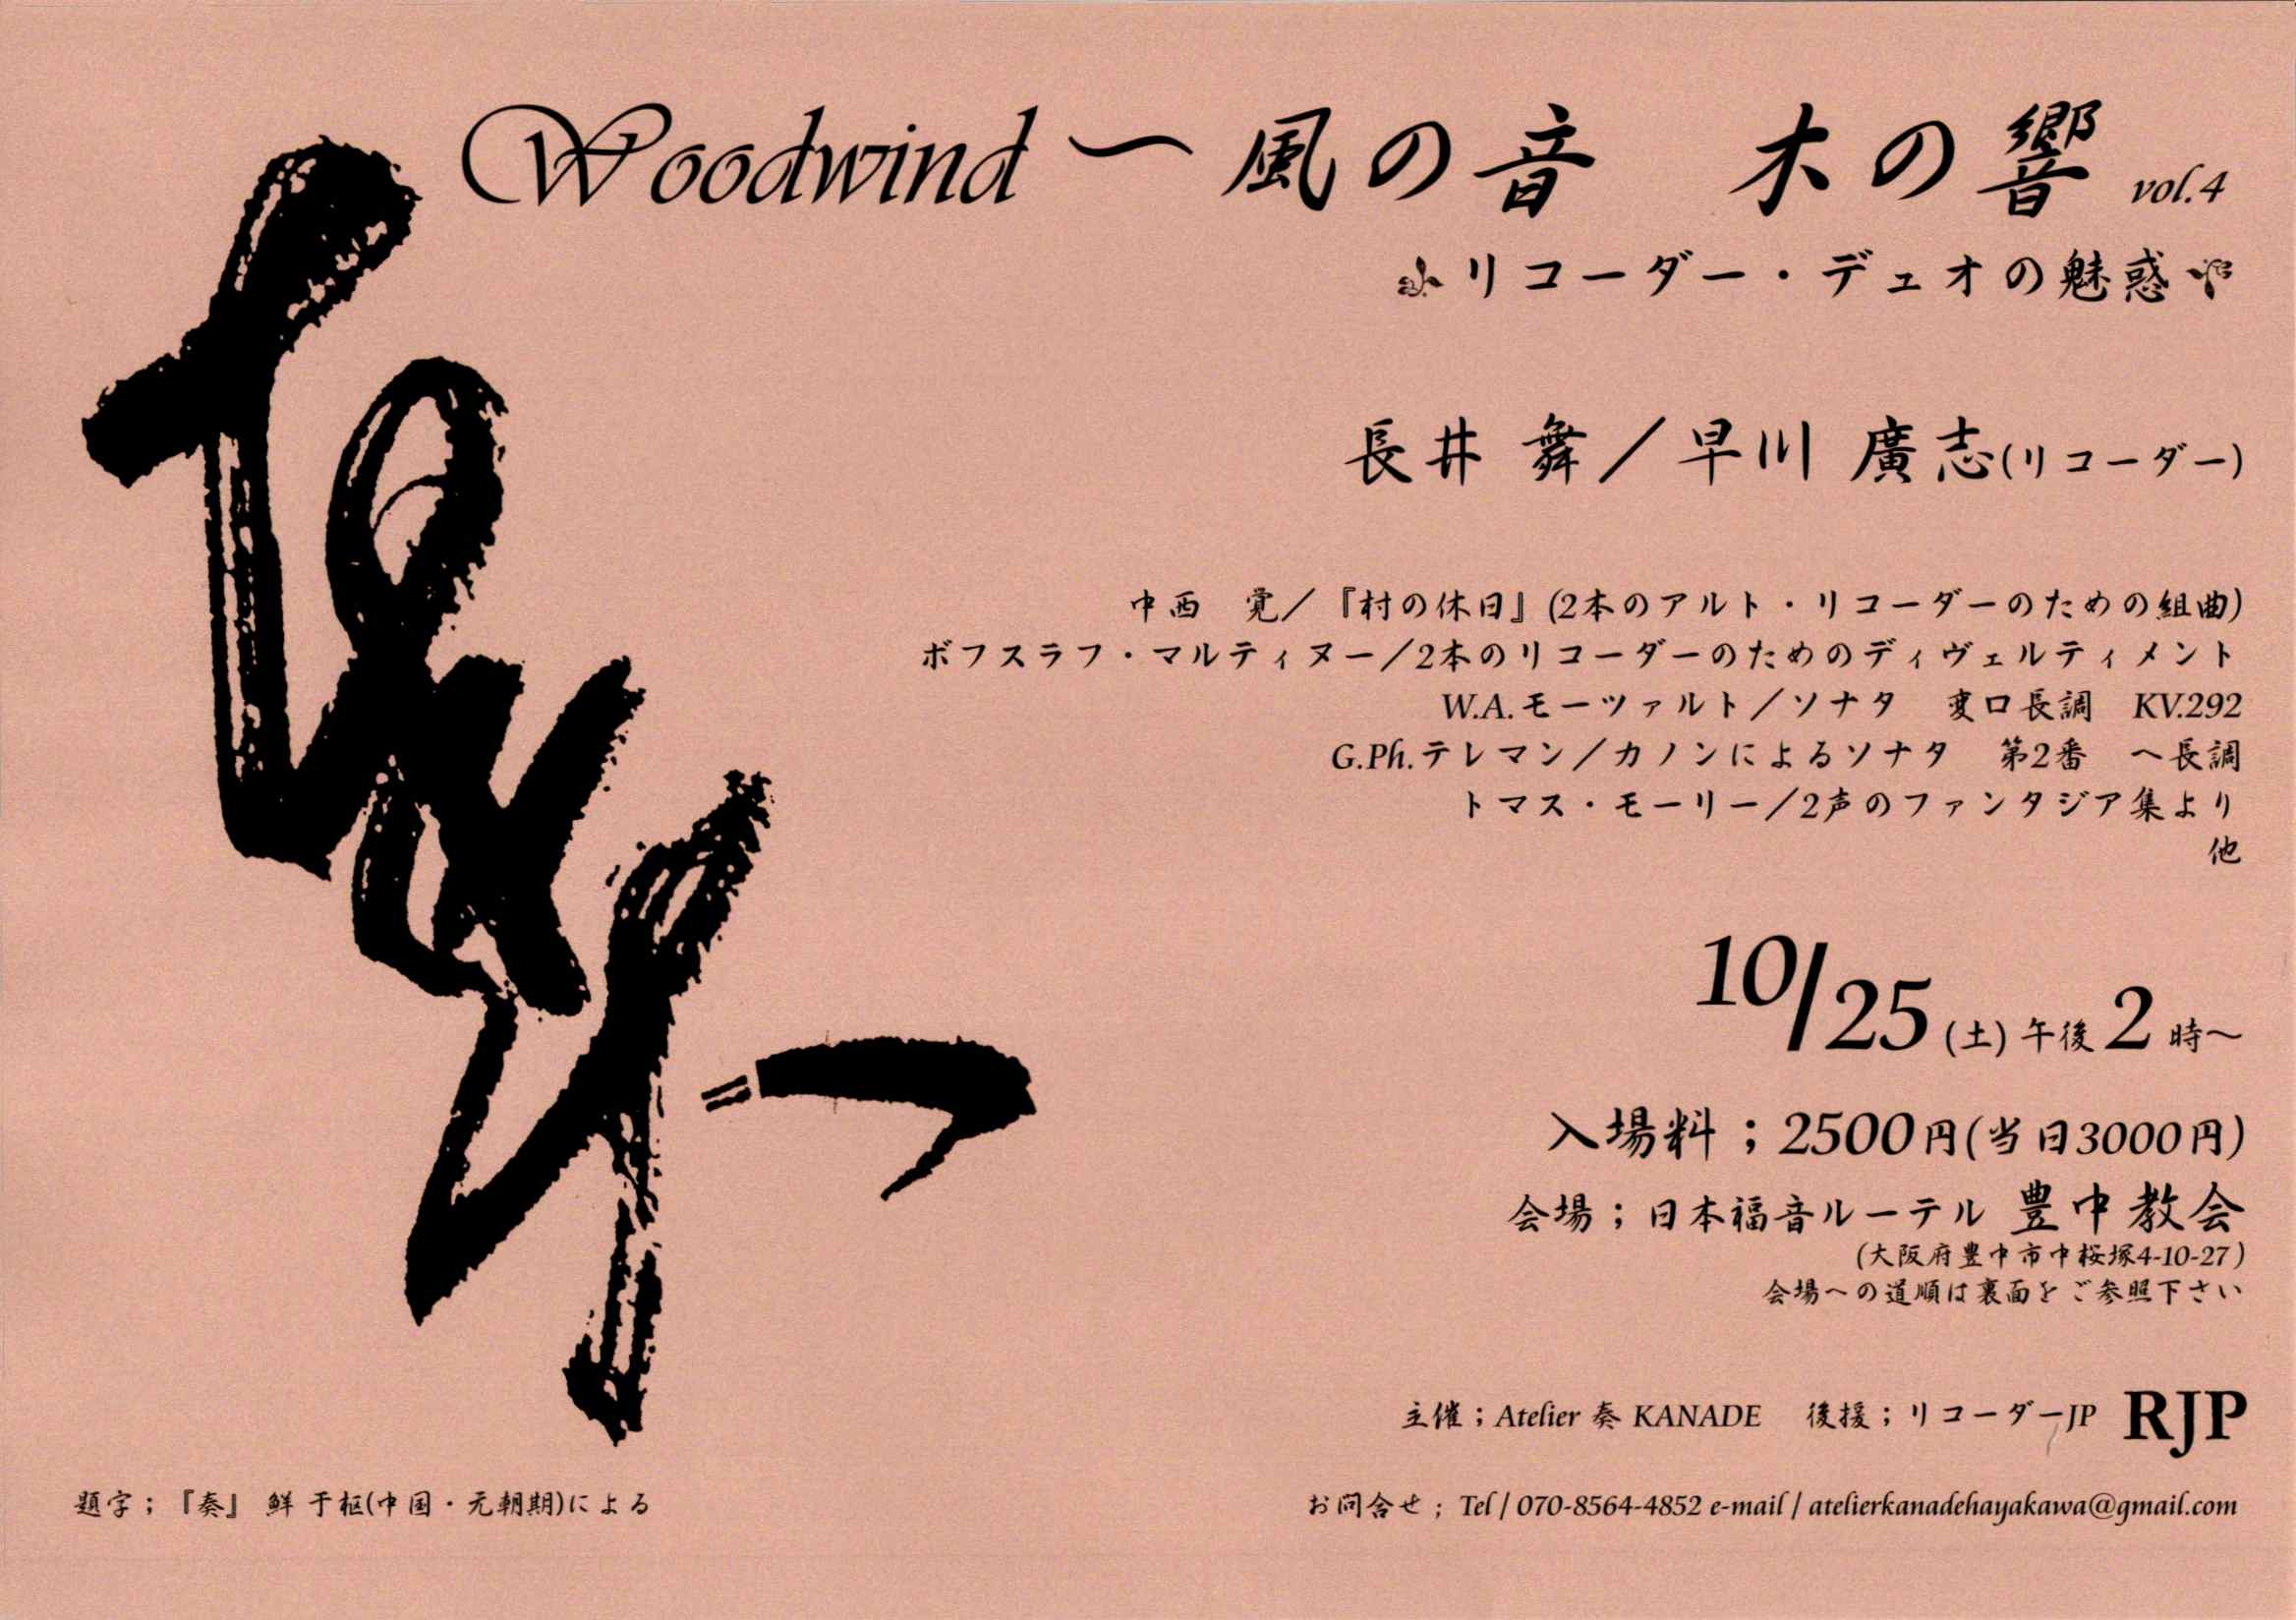 Woodwind～風の音　木の響 vol.4
リコーダー・デュオの魅惑
長井 舞／早川 廣志(リコーダー)
中西　覚／『村の休日』(2本のアルト・リコーダーのための組曲)
ボフスラフ・マルティヌー／2本のリコーダーのためのディヴェルティメント
W.A.モーツァルト／ソナタ　変ロ長調　KV.292
G.Ph.テレマン／カノンによるソナタ　第2番　ヘ長調
トマス・モーリー／2声のファンタジア集より
他
10/25(土)午後2時～
入場料；2500円(当日3000円)
会場；日本福音ルーテル 豊中教会
(大阪府豊中市中桜塚4-10-27)
会場への道順は裏面をご参照下さい
主催；Atelier 奏 KANADE　後援；リコーダーJP RJP
お問合せ；Tel / 070-8564-4852 e-mail / atelierkanadehayakawa@gmail.com
奏
題字；『奏』 鮮于枢(中国・元朝期)による